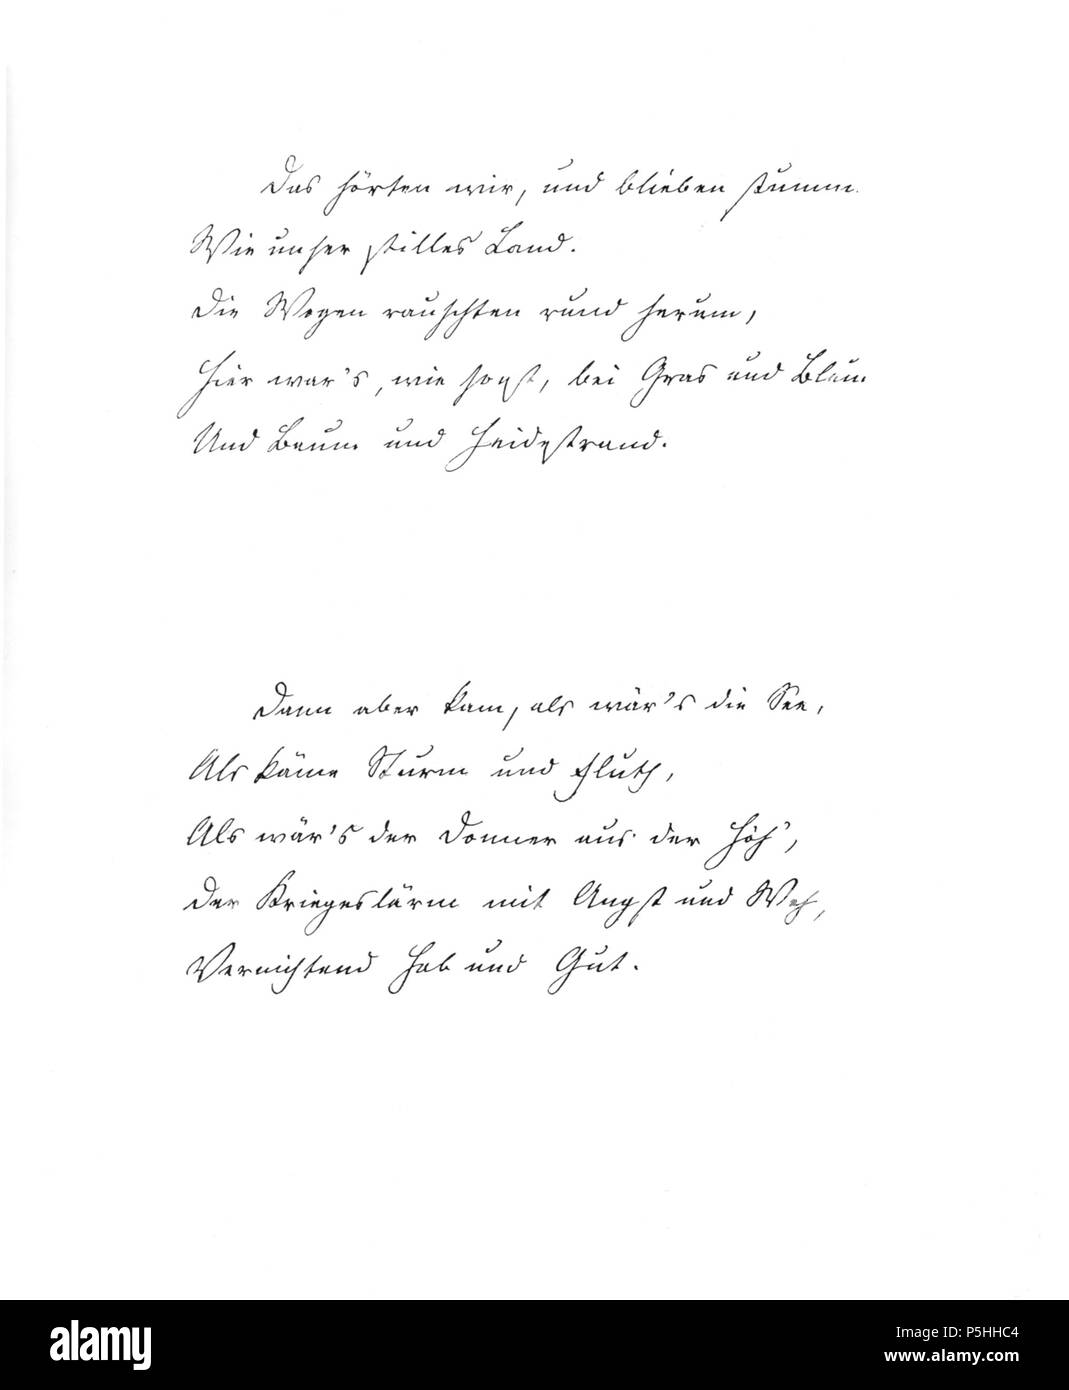 Das hörten wir, und blieben stumm.
Wie unser stilles Land.
Die Wogen rauschten rund herum,
Hier war's, wie sonst, bei Gras und Blum
Und Baum und Heidestrand.
Dann aber kam, als wär's die See,
Als käme Sturm und Fluth,
Als wär's der Donner aus der Höh',
Der Kriegeslärm mit Angst und Weh,
Vernichtend Hab und Gut.
alamy
Image ID: P5HHC4
www.alamy.com